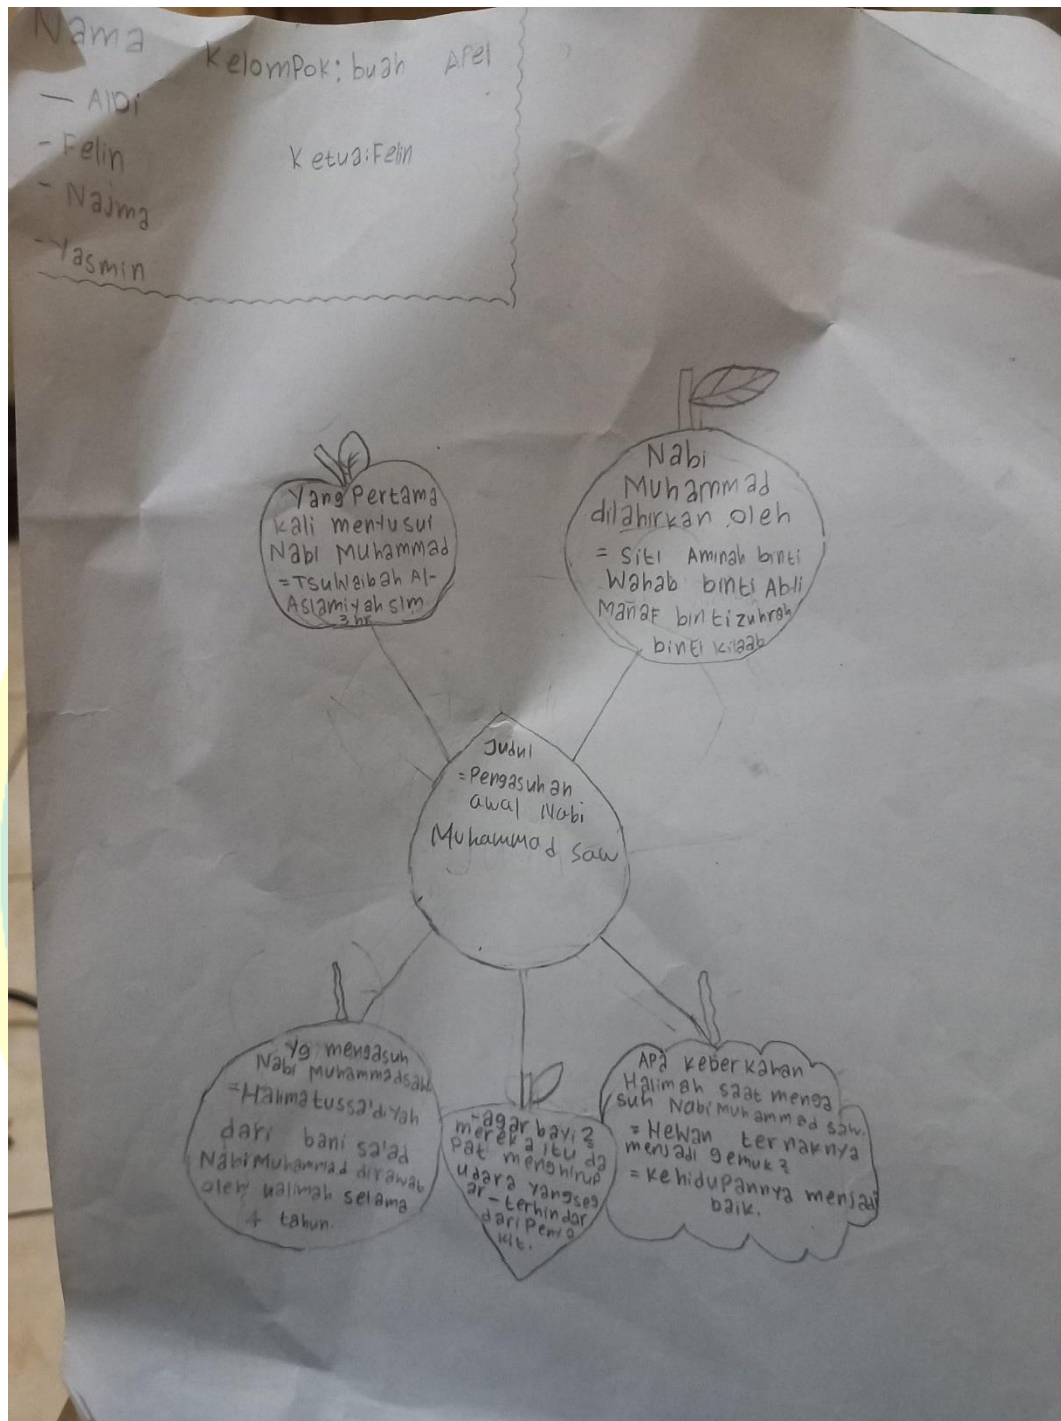 Nama
Kelompok: buah Apel
— AlDi
- Felin
Ketua: Felin
- Najma
- Yasmin
Yang Pertama
kali menyusui
Nabi Muhammad
= Tsuwaibah Al-
Aslamiyah slm
3 hr
Nabi
Muhammad
dilahirkan oleh
= Siti Aminah binti
Wahab binti Abdi
Manaf binti zuhrah
binti kilaab
Judul
= Pengasuhan
awal Nabi
Muhammad Saw
Yg mengasuh
Nabi Muhammad saw
= Halimatussa'diyah
dari bani sa'ad
Nabi Muhammad dirawat
oleh halimah selama
4 tahun.
- agar bayi2
mereka itu da
pat menghirup
udara yang seg
ar - terhindar
dari Penya
kit.
APa keberkahan
Halimah saat menga
suh Nabi Muhammad saw.
= Hewan ternaknya
menjadi gemuk2
= kehidupannya menjadi
baik.